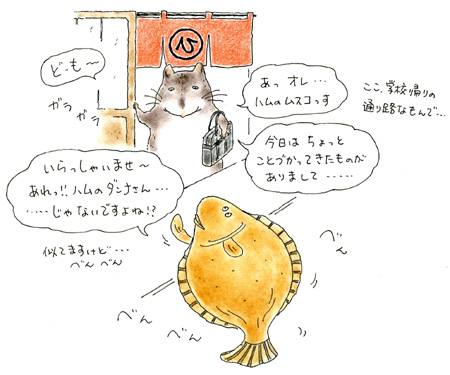 ど−も〜
ガラ
ガラ
あっ オレ・・・
ハムのムスコっす
ここ、学校帰りの
通り路なもんで・・・
今日は ちょっと
ことづかってきたものが
ありまして・・・・・
いらっしゃいませ〜
あれっ!! ハムのダンナさん・・・
・・・・・じゃないですよね!?
似てますけど・・・
べん べん
べん
べん
べん
べん